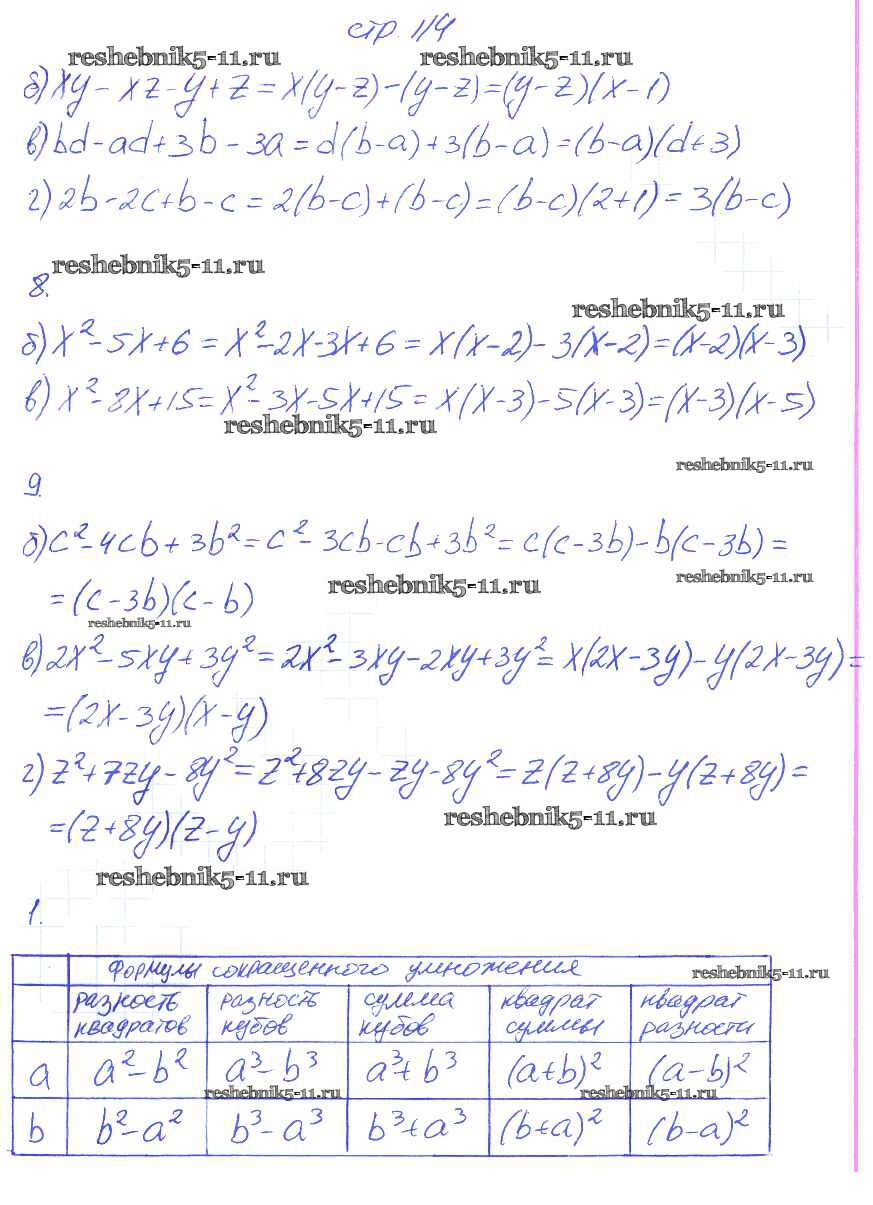 стр. 114
reshebnik5-11.ru reshebnik5-11.ru
б) xy - xz - y + z = x(y-z) - (y-z) = (y-z)(x-1)
в) bd - ad + 3b - 3a = d(b-a) + 3(b-a) = (b-a)(d+3)
г) 2b - 2c + b - c = 2(b-c) + (b-c) = (b-c)(2+1) = 3(b-c)
reshebnik5-11.ru
8.
reshebnik5-11.ru
б) x² - 5x + 6 = x² - 2x - 3x + 6 = x(x-2) - 3(x-2) = (x-2)(x-3)
в) x² - 8x + 15 = x² - 3x - 5x + 15 = x(x-3) - 5(x-3) = (x-3)(x-5)
reshebnik5-11.ru
reshebnik5-11.ru
9.
б) c² - 4cb + 3b² = c² - 3cb - cb + 3b² = c(c-3b) - b(c-3b) =
reshebnik5-11.ru reshebnik5-11.ru
= (c-3b)(c-b)
reshebnik5-11.ru
в) 2x² - 5xy + 3y² = 2x² - 3xy - 2xy + 3y² = x(2x-3y) - y(2x-3y) =
= (2x-3y)(x-y)
г) z² + 7zy - 8y² = z² + 8zy - zy - 8y² = z(z+8y) - y(z+8y) =
= (z+8y)(z-y)
reshebnik5-11.ru
reshebnik5-11.ru
1.
Формулы сокращенного умножения
reshebnik5-11.ru
разность квадратов разность кубов сумма кубов квадрат суммы квадрат разности
a a² - b² a³ - b³ a³ + b³ (a+b)² (a-b)²
reshebnik5-11.ru reshebnik5-11.ru
b b² - a² b³ - a³ b³ + a³ (b+a)² (b-a)²